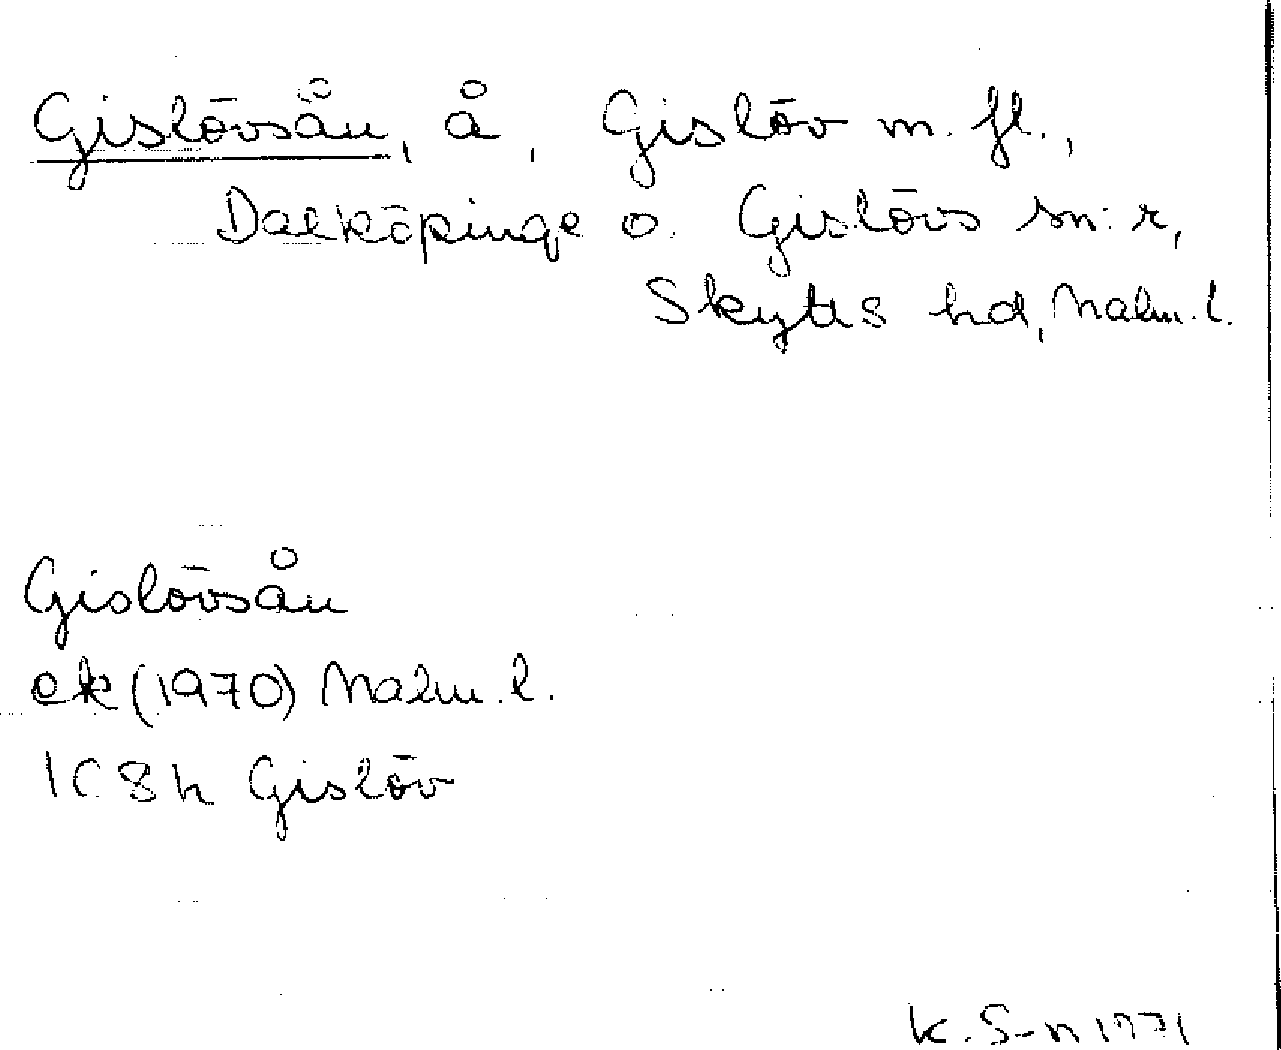 Gislövsån, å, Gislöv m. fl.,
Dalköpinge o. Gislövs sn:r,
Skytts hd, Malm. l.
Gislövsån
ek (1970) Malm. l.
1C 8h Gislöv
K. S-n 1971